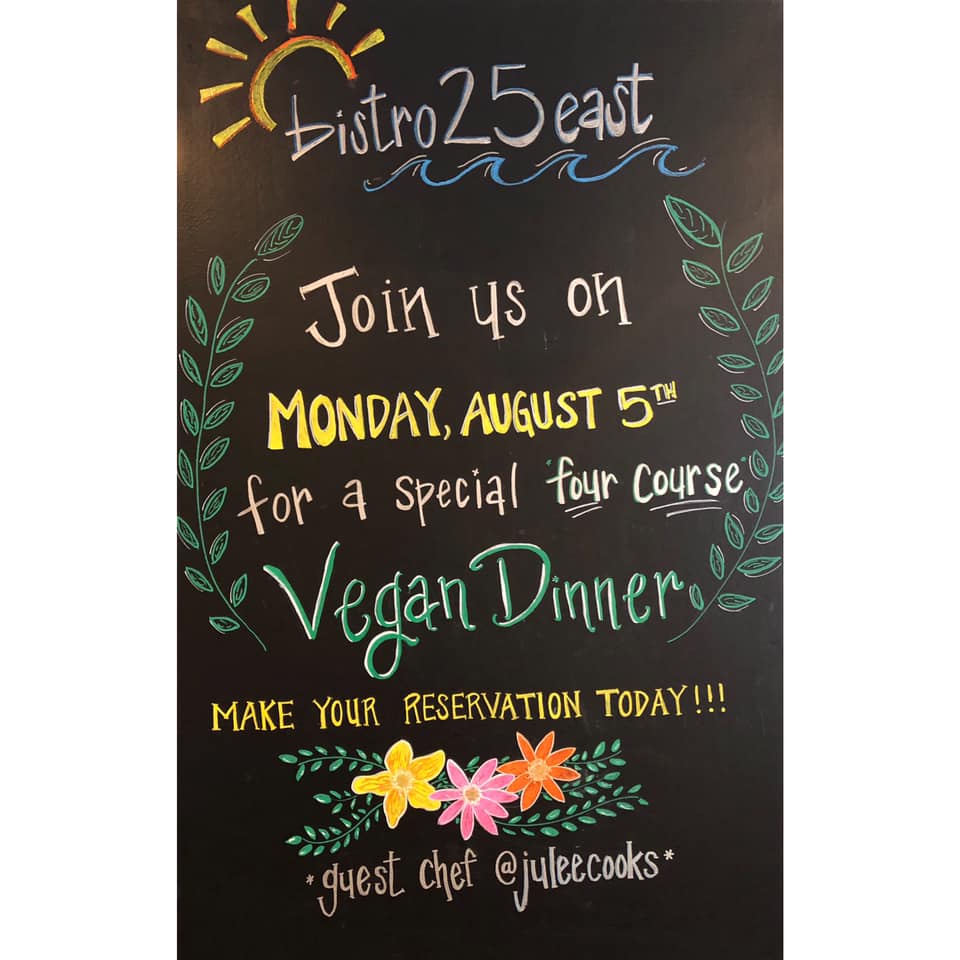 bistro25east
Join us on
MONDAY, AUGUST 5TH
for a special "four course"
Vegan Dinner
MAKE YOUR RESERVATION TODAY!!!
*guest chef @juleecooks*